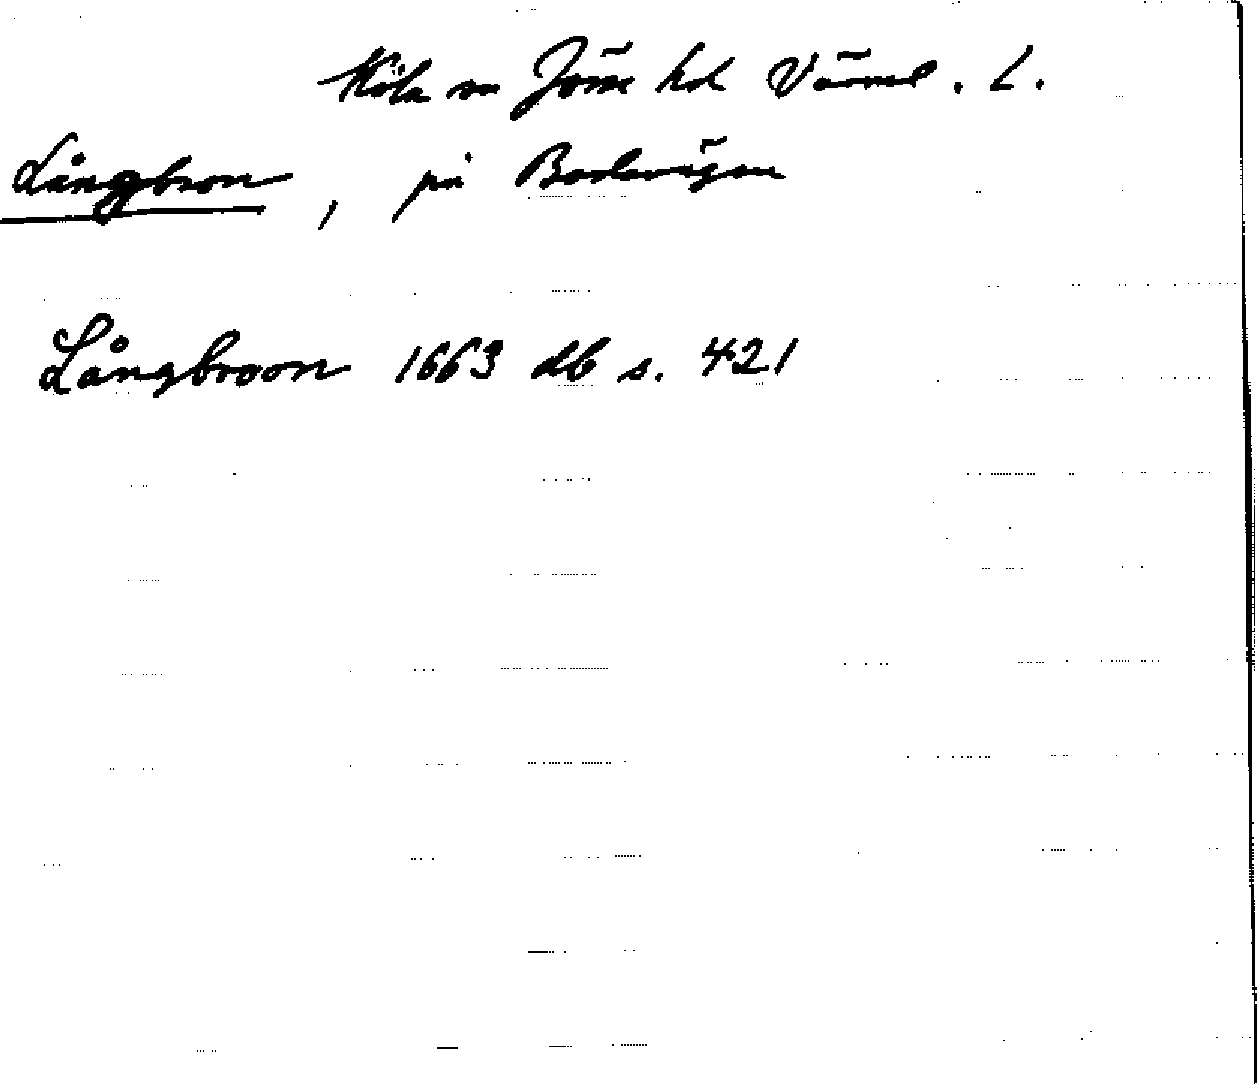 Köla sn Jösse hd Värml. L.
Långbron, på Bodavägen
Långbroon 1663 db s. 421